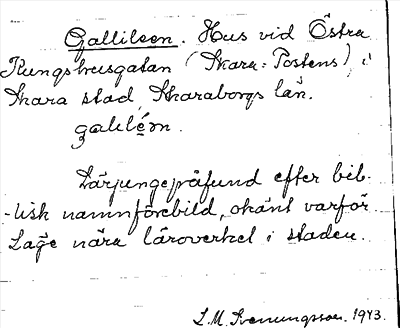 Galliléen. Hus vid Östra
Kungshusgatan (Skara-Postens) i
Skara stad, Skaraborgs län.
galilén.
Lärjungepåfund efter bib-
-lisk namnförebild, okänt varför
Läge nära läroverket i staden.
L.M. Svenungsson. 1943.